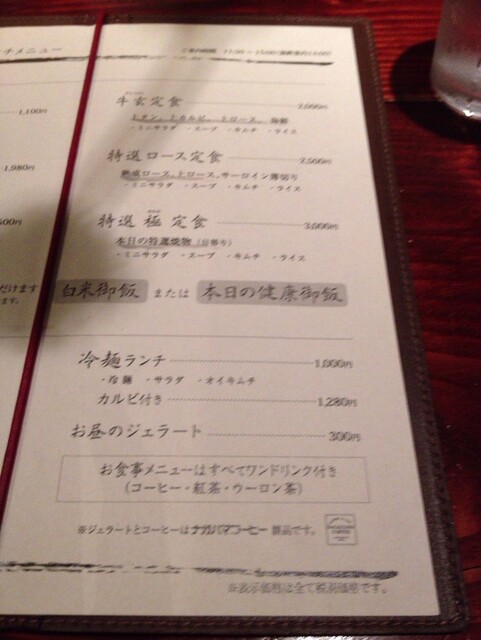 チメニュー
1,100円
1,980円
500円
だけます
ます。
ご案内時間 11:30～15:00
牛玄定食 2,000円
上タン、上カルビ、上ロース、海鮮
・ミニサラダ ・スープ ・キムチ ・ライス
特選ロース定食 2,500円
熟成ロース、上ロース、サーロイン薄切り
・ミニサラダ ・スープ ・キムチ ・ライス
特選 極 定食 3,000円
本日の特選焼物（日替り）
・ミニサラダ ・スープ ・キムチ ・ライス
白米御飯 または 本日の健康御飯
冷麺ランチ 1,000円
・冷麺 ・サラダ ・オイキムチ
カルビ付き 1,280円
お昼のジェラート 300円
お食事メニューはすべてワンドリンク付き
(コーヒー・紅茶・ウーロン茶)
※ジェラートとコーヒーはナガハマコーヒー製品です。
※表示価格は全て税抜価格です。